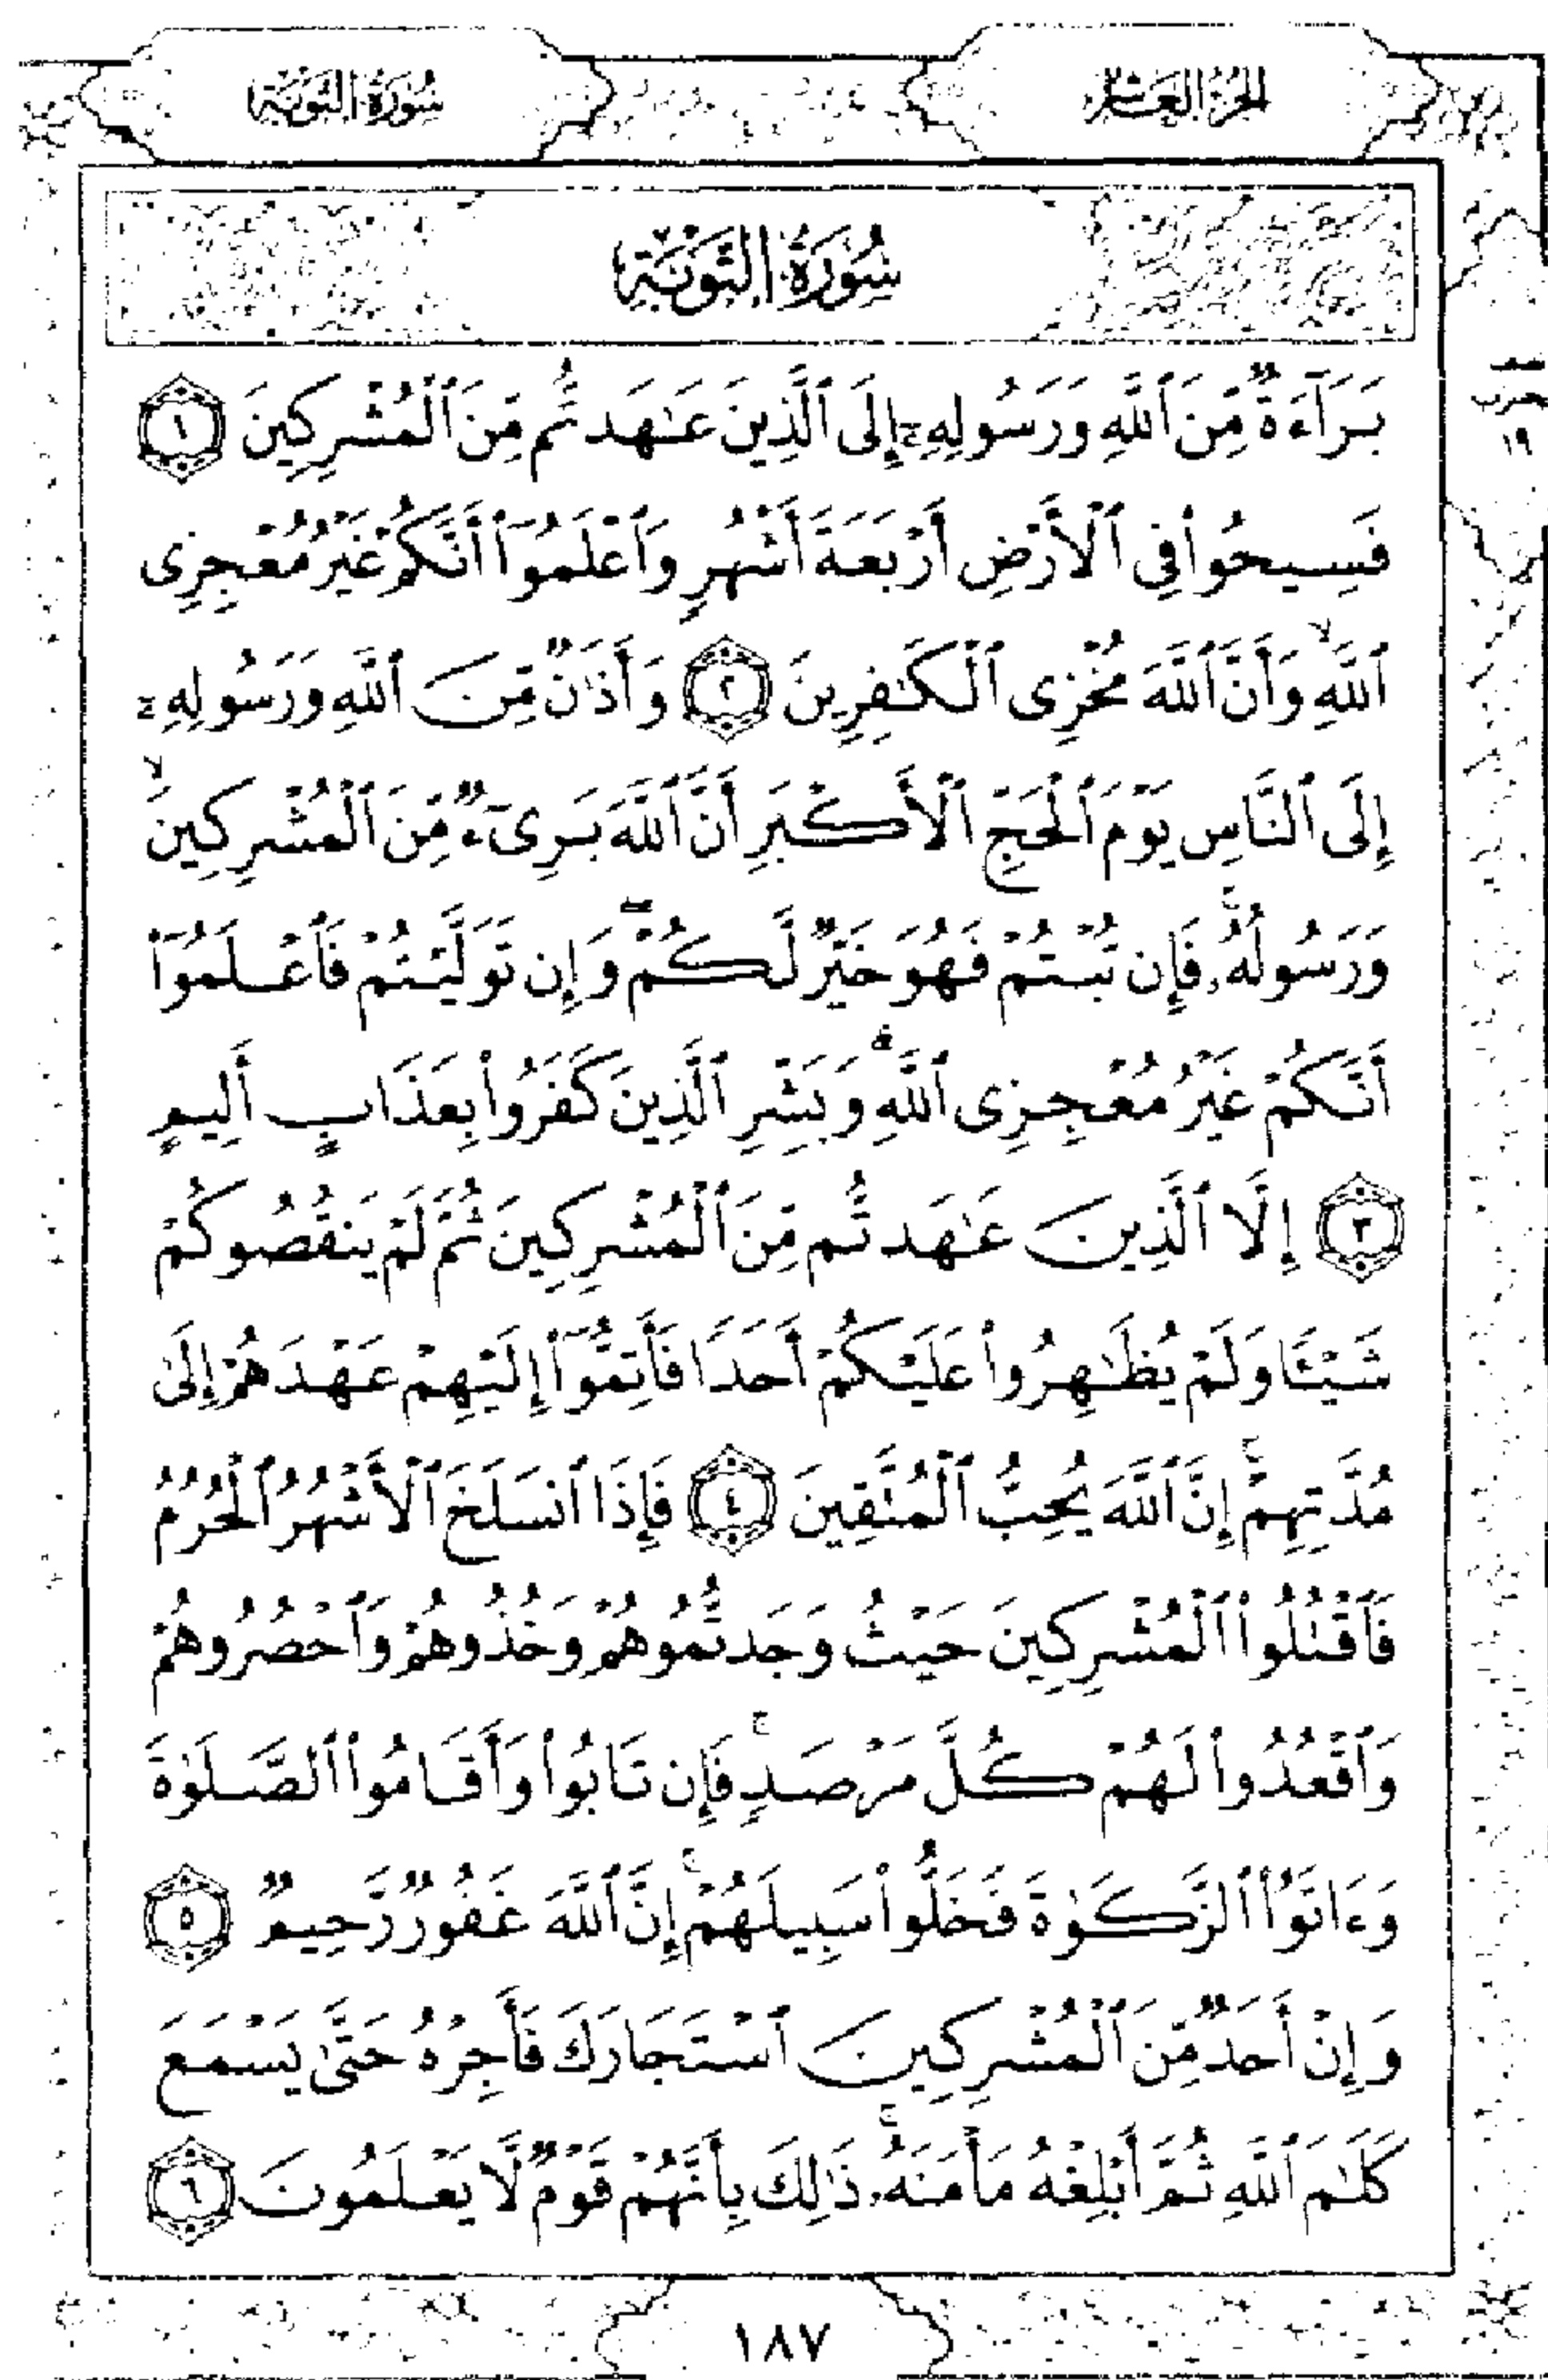 الجزء العاشر
سورة التوبة
سورة التوبة
نصف
حزب
١٩
بَرَآءَةٌ مِّنَ ٱللَّهِ وَرَسُولِهِۦٓ إِلَى ٱلَّذِينَ عَـٰهَدتُّم مِّنَ ٱلْمُشْرِكِينَ ١
فَسِيحُوا۟ فِى ٱلْأَرْضِ أَرْبَعَةَ أَشْهُرٍ وَٱعْلَمُوٓا۟ أَنَّكُمْ غَيْرُ مُعْجِزِى
ٱللَّهِ ۙ وَأَنَّ ٱللَّهَ مُخْزِى ٱلْكَـٰفِرِينَ ٢ وَأَذَٰنٌ مِّنَ ٱللَّهِ وَرَسُولِهِۦٓ
إِلَى ٱلنَّاسِ يَوْمَ ٱلْحَجِّ ٱلْأَكْبَرِ أَنَّ ٱللَّهَ بَرِىٓءٌ مِّنَ ٱلْمُشْرِكِينَ ۙ
وَرَسُولُهُۥ ۚ فَإِن تُبْتُمْ فَهُوَ خَيْرٌ لَّكُمْ ۖ وَإِن تَوَلَّيْتُمْ فَٱعْلَمُوٓا۟
أَنَّكُمْ غَيْرُ مُعْجِزِى ٱللَّهِ ۗ وَبَشِّرِ ٱلَّذِينَ كَفَرُوا۟ بِعَذَابٍ أَلِيمٍ
٣ إِلَّا ٱلَّذِينَ عَـٰهَدتُّم مِّنَ ٱلْمُشْرِكِينَ ثُمَّ لَمْ يَنقُصُوكُمْ
شَيْـًٔا وَلَمْ يُظَـٰهِرُوا۟ عَلَيْكُمْ أَحَدًا فَأَتِمُّوٓا۟ إِلَيْهِمْ عَهْدَهُمْ إِلَىٰ
مُدَّتِهِمْ ۚ إِنَّ ٱللَّهَ يُحِبُّ ٱلْمُتَّقِينَ ٤ فَإِذَا ٱنسَلَخَ ٱلْأَشْهُرُ ٱلْحُرُمُ
فَٱقْتُلُوا۟ ٱلْمُشْرِكِينَ حَيْثُ وَجَدتُّمُوهُمْ وَخُذُوهُمْ وَٱحْصُرُوهُمْ
وَٱقْعُدُوا۟ لَهُمْ كُلَّ مَرْصَدٍ ۚ فَإِن تَابُوا۟ وَأَقَامُوا۟ ٱلصَّلَوٰةَ
وَءَاتَوُا۟ ٱلزَّكَوٰةَ فَخَلُّوا۟ سَبِيلَهُمْ ۚ إِنَّ ٱللَّهَ غَفُورٌ رَّحِيمٌ ٥
وَإِنْ أَحَدٌ مِّنَ ٱلْمُشْرِكِينَ ٱسْتَجَارَكَ فَأَجِرْهُ حَتَّىٰ يَسْمَعَ
كَلَـٰمَ ٱللَّهِ ثُمَّ أَبْلِغْهُ مَأْمَنَهُۥ ۚ ذَٰلِكَ بِأَنَّهُمْ قَوْمٌ لَّا يَعْلَمُونَ ٦
١٨٧